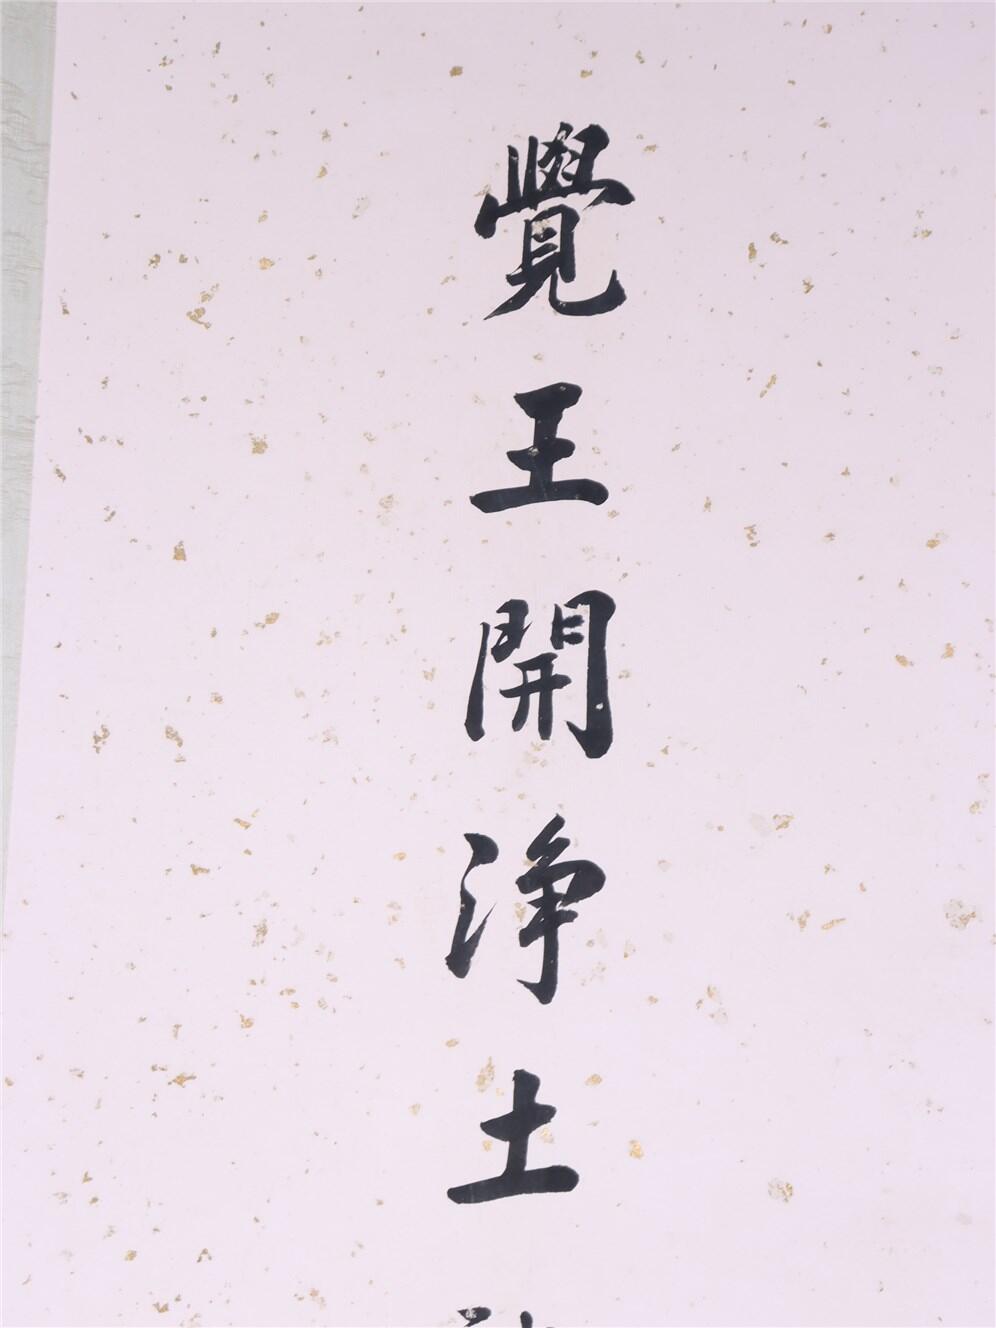 覺王開淨土